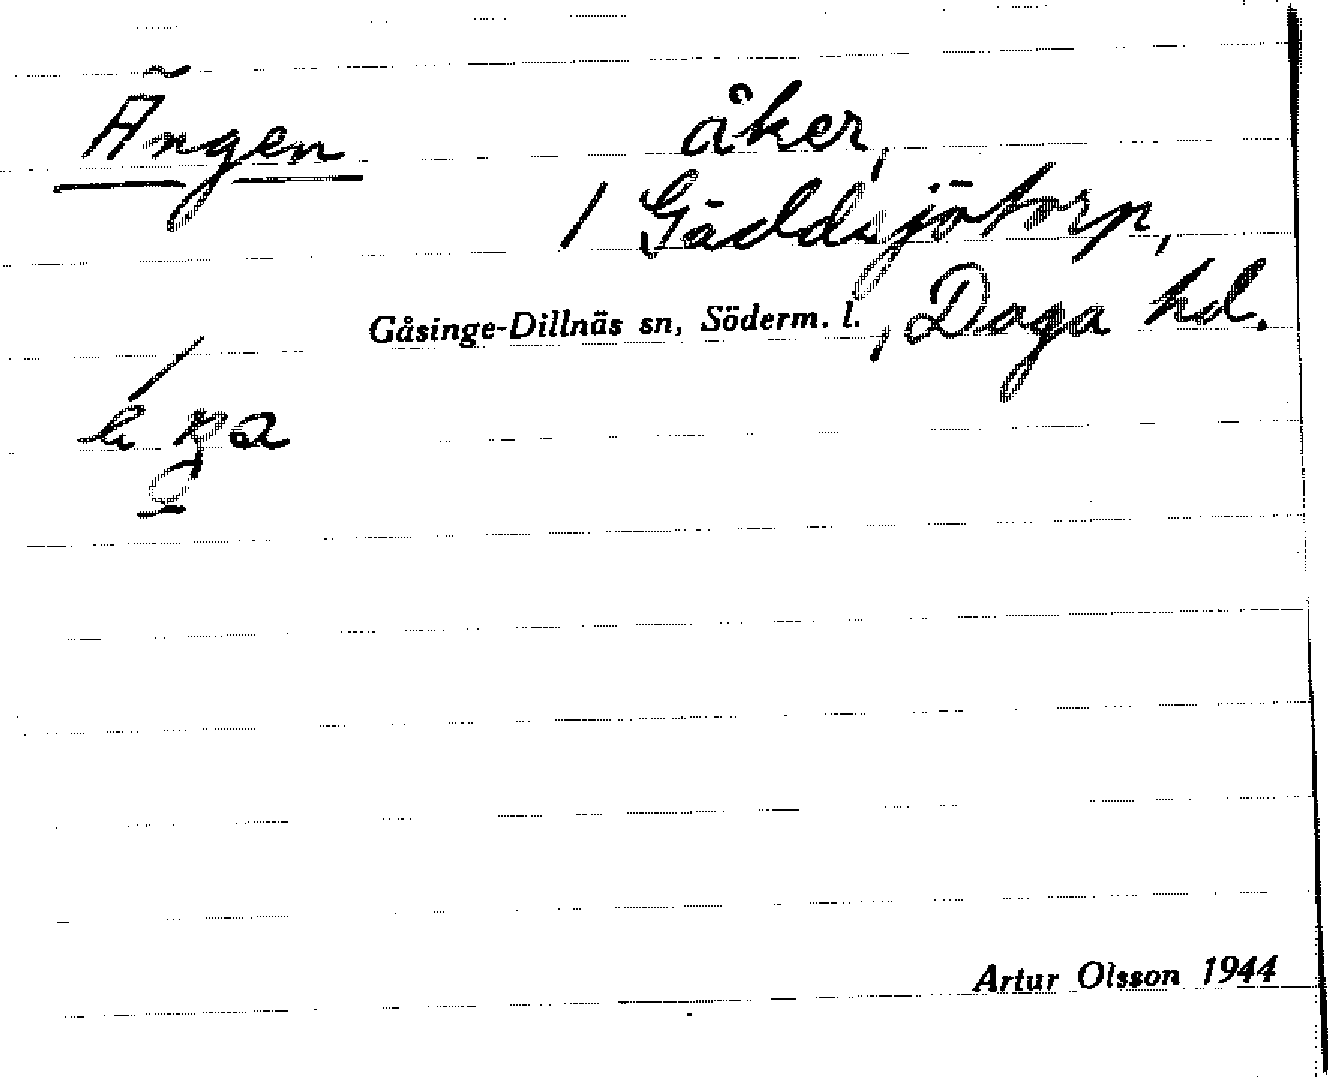 Ängen åker,
/ Gäddsjötorp,
Gåsinge-Dillnäs sn, Söderm. l., Daga hd.
Artur Olsson 1944